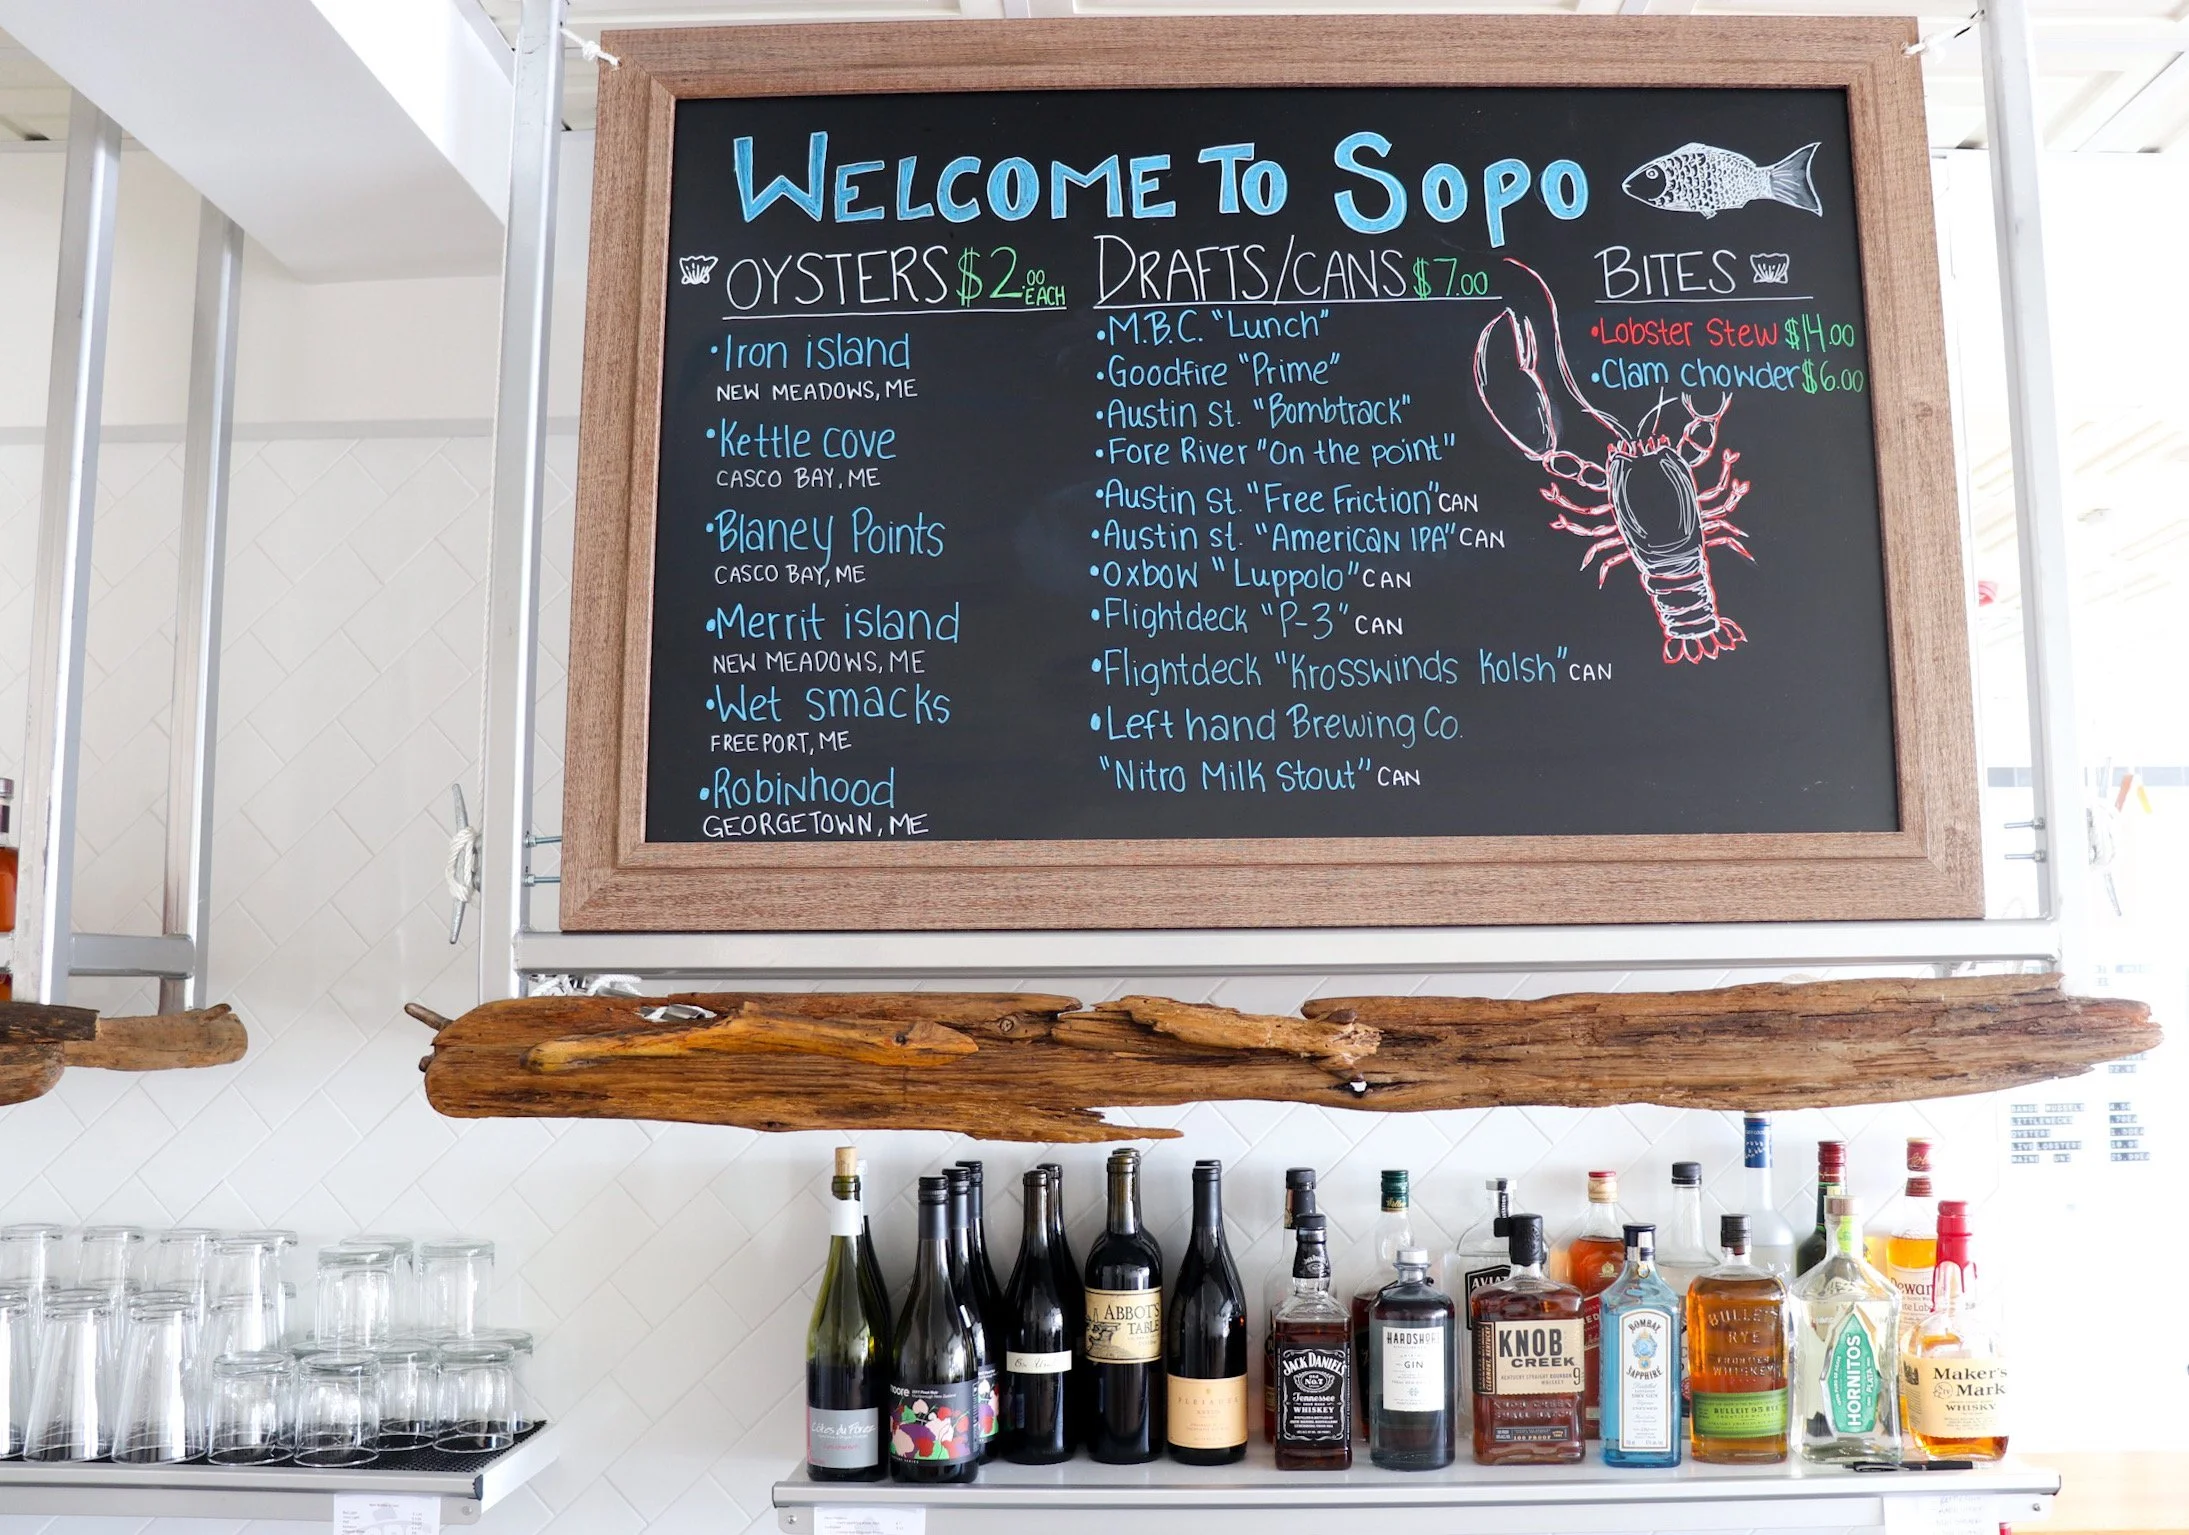 WELCOME TO SOPO
OYSTERS $2.00 EACH
•Iron island
NEW MEADOWS, ME
•Kettle cove
CASCO BAY, ME
•Blaney Points
CASCO BAY, ME
•Merrit island
NEW MEADOWS, ME
•Wet smacks
FREEPORT, ME
•Robinhood
GEORGETOWN, ME
DRAFTS/CANS $7.00
•M.B.C. "Lunch"
•Goodfire "Prime"
•Austin St. "Bombtrack"
•Fore River "On the point"
•Austin st. "Free Friction" CAN
•Austin st. "American IPA" CAN
•Oxbow "Luppolo" CAN
•Flightdeck "P-3" CAN
•Flightdeck "Krosswinds Kolsh" CAN
•Left hand Brewing Co.
"Nitro Milk Stout" CAN
BITES
•Lobster Stew $14.00
•Clam chowder $6.00
ABBOT'S
TABLE
JACK DANIEL'S
OLD
No.7
Tennessee
WHISKEY
GIN
KNOB
CREEK
KENTUCKY STRAIGHT BOURBON
WHISKEY
9
100 PROOF
BOMBAY
SAPPHIRE
BULLEIT
RYE
WHISKEY
BULLEIT 95 RYE
HORNITOS
PLATA
Maker's
Mark
WHISKY